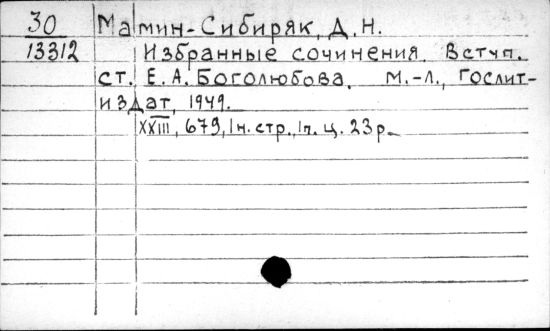 30 Мамин-Сибиряк, Д. Н.
13312 Избранные сочинения. Вступ.
ст. Е. А. Боголюбова. М.-Л., Гослит-
издат, 1949.
XXIII, 679, 1н. стр., 1п. ц. 23р.